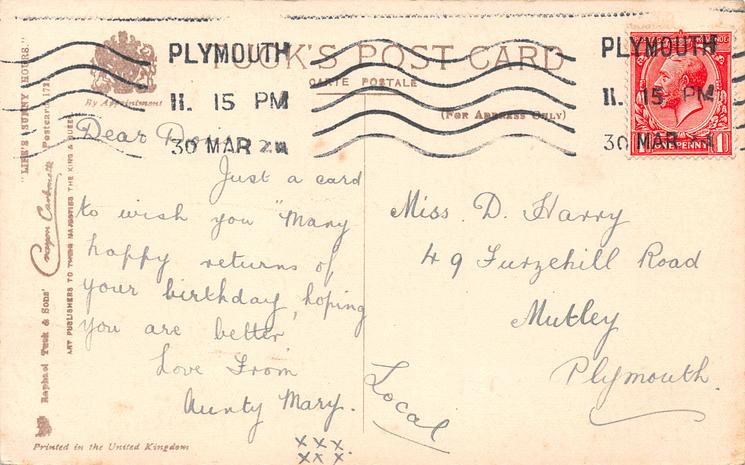 PLYMOUTH
11. 15 PM
30 MAR
TUCK'S POST CARD
CARTE POSTALE
(FOR ADDRESS ONLY)
By Appointment
PLYMOUTH
11. 15 PM
30 MAR
PENNY
"LIFE'S SUNNY HOURS."
Postcard 17
Raphael Tuck & Sons'
Crayon Carbonette
ART PUBLISHERS TO THEIR MAJESTIES THE KING & QUEEN
Dear
Just a card
to wish you "Many
happy returns of
your birthday, hoping
you are better,
Love From
Aunty Mary.
xxx.
xx x
Miss. D. Harry
49 Furzehill Road
Mutley
Plymouth.
Local
Printed in the United Kingdom